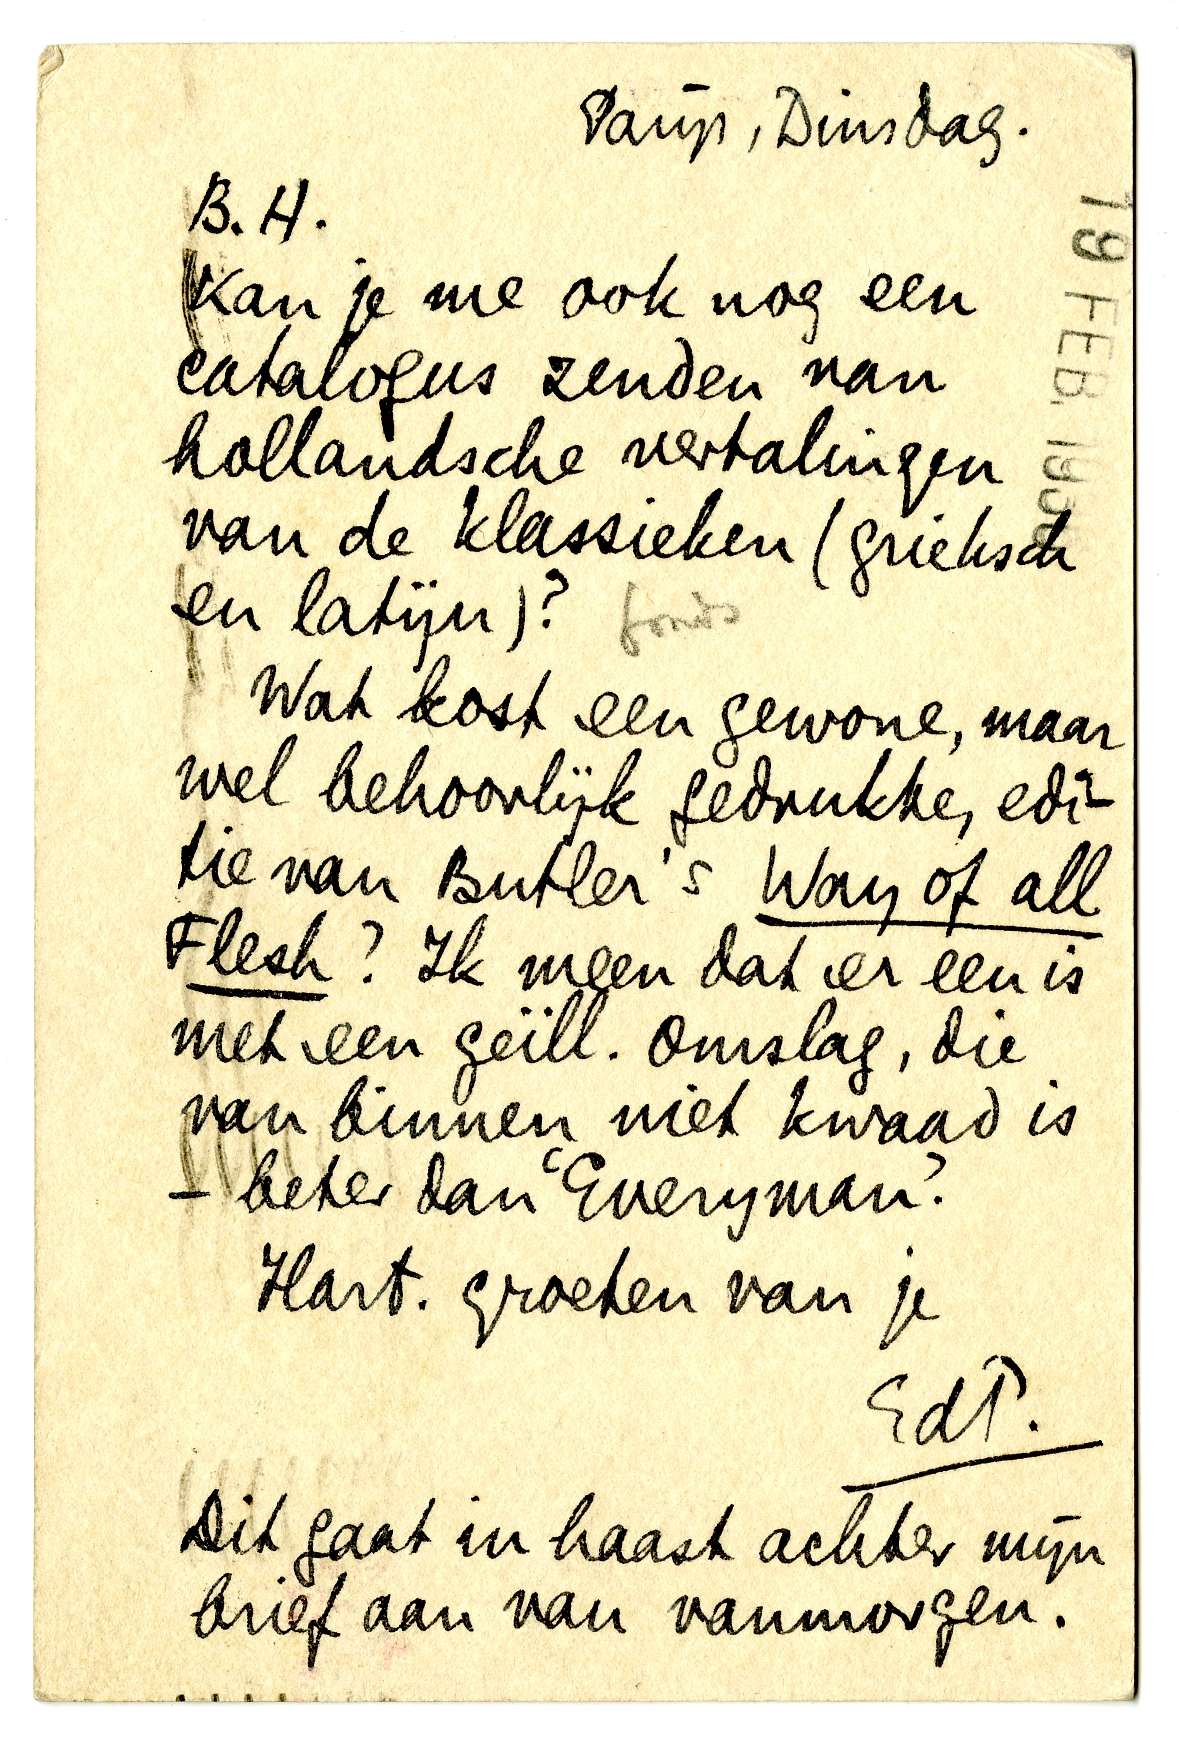 Parijs, Dinsdag.
B. H.
Kan je me ook nog een
catalogus zenden van
hollandsche vertalingen
van de klassieken (grieksch
en latijn)? fonds
Wat kost een gewone, maar
wel behoorlijk gedrukte, edi-
tie van Butler's Way of all
Flesh? Ik meen dat er een is
met een geïll. omslag, die
van binnen niet kwaad is
– beter dan "Everyman".
Hart. groeten van je
EdP.
Dit gaat in haast achter mijn
brief aan van vanmorgen.
19 FEB. 193